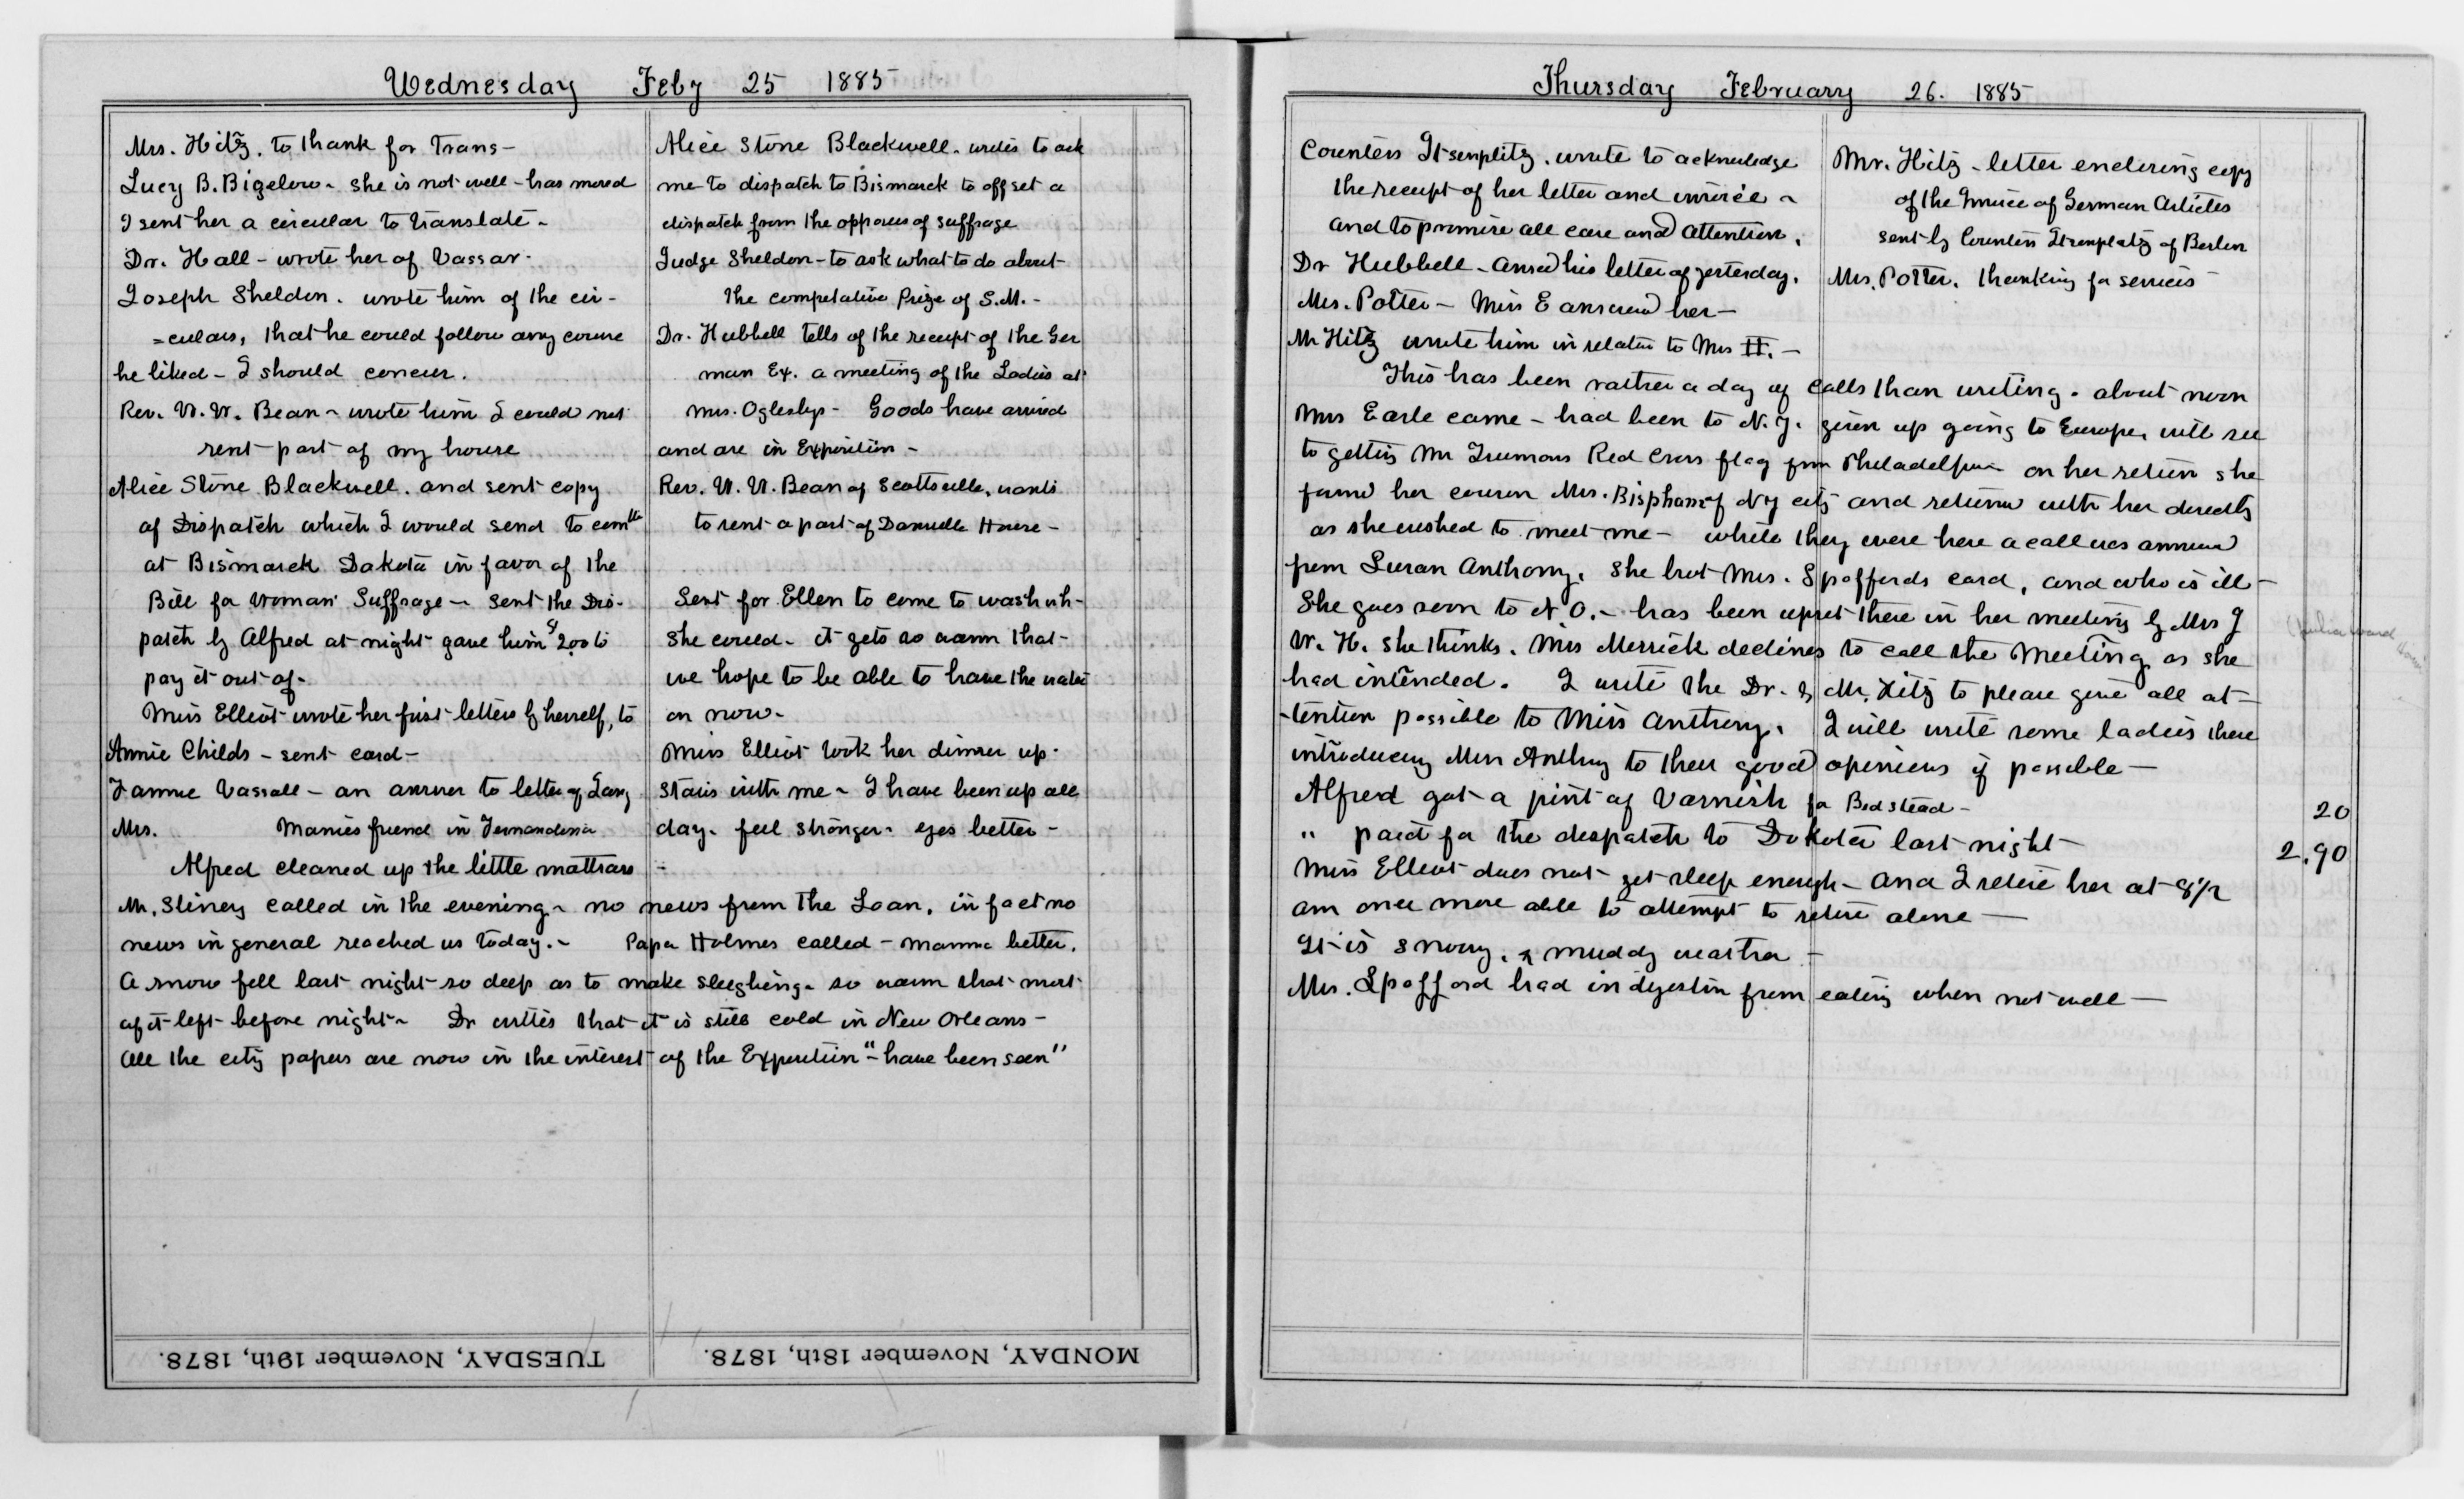 Wednesday Feby 25 1885
Mrs. Hitz. to thank for Trans-
Lucy B. Bigelow - she is not well - has moved
I sent her a circular to translate -
Dr. Hall - wrote her of Vassar -
Joseph Sheldon. wrote him of the cir-
=culars, that he could follow any course
he liked - I should concur.
Rev. W. W. Bean - wrote him I could not
rent part of my house
Alice Stone Blackwell. and sent copy
of Dispatch which I would send to comtte
at Bismarck Dakota in favor of the
Bill for Woman Suffrage - sent the Dis-
patch by Alfred at night gave him $2.00 to
pay it out of -
Miss Elliot wrote her first letters by herself, to
Annie Childs - sent card -
Fannie Vassall - an answer to letter of
Mrs. Mamies friend in Fernandina
Alfred cleaned up the little mattrass -
Alice Stone Blackwell. writes to ask
me to dispatch to Bismarck to offset a
dispatch from the opposers of suffrage
Judge Sheldon - to ask what to do about
the competative Prize of S.M. -
Dr. Hubbell tells of the receipt of the Ger
man Ex. a meeting of the Ladies at
Mrs. Oglesbys - Goods have arrived
and are in Exposition -
Rev. W. W. Bean of Scottsville, wants
to rent a part of Dansville House -
Sent for Ellen to come to wash wh-
she could - it gets so warm that
we hope to be able to have the water
on now -
Miss Elliot took her dinner up-
stairs with me - I have been up all
day - feel stronger - eyes better -
Mr. Stiney called in the evening - no news from the Loan, in fact no
news in general reached us today. - Papa Holmes called - Mamma better.
A snow fell last night so deep as to make sleighing - so warm that most
of it left before night - Dr writes that it is still cold in New Orleans -
All the city papers are now in the interest of the Exposition "- have been seen"
TUESDAY, November 19th, 1878.
MONDAY, November 18th, 1878.
Thursday February 26. 1885
Countess Itsenplitz. wrote to acknowledge
the receipt of her letter and invoice -
and to promise all care and attention.
Dr Hubbell - Answd his letter of yesterday.
Mrs. Potter - Miss E answered her -
Mr Hitz wrote him in relation to Mrs H. -
Mr. Hitz - letter enclosing copy
of the Invoice of German Articles
sent by Countess Itzenplitz of Berlin
Mrs. Potter. thanking for services
This has been rather a day of calls than writing. about noon
Mrs Earle came - had been to N.Y. given up going to Europe, will see
to getting Mr Trumans Red Cross flag from Philadelphia on her return she
found her cousin Mrs. Bispham of NY city and returned with her directly
as she wished to meet me - while they were here a call was announced
from Susan Anthony. She brot Mrs. Spaffords card, and who is ill -
She goes soon to N.O. - has been upset there in her meeting by Mrs J
W. H. she thinks. Mrs Merrick declines to call the Meeting as she
had intended. I write the Dr. & Mr. Hitz to please give all at-
-tention possible to Miss Anthony. I will write some ladies there
introducing Miss Anthony to their good opinions if possible -
Alfred got a pint of Varnish for Bedstead - 20
" paid for the despatch to Dakota last night 2.90
Miss Elliot does not get sleep enough - and I relieve her at 8 1/2
am once more able to attempt to retire alone -
It is snowy, & muddy weather -
Mrs. Spafford had indigestion from eating when not well -
(Julia Ward